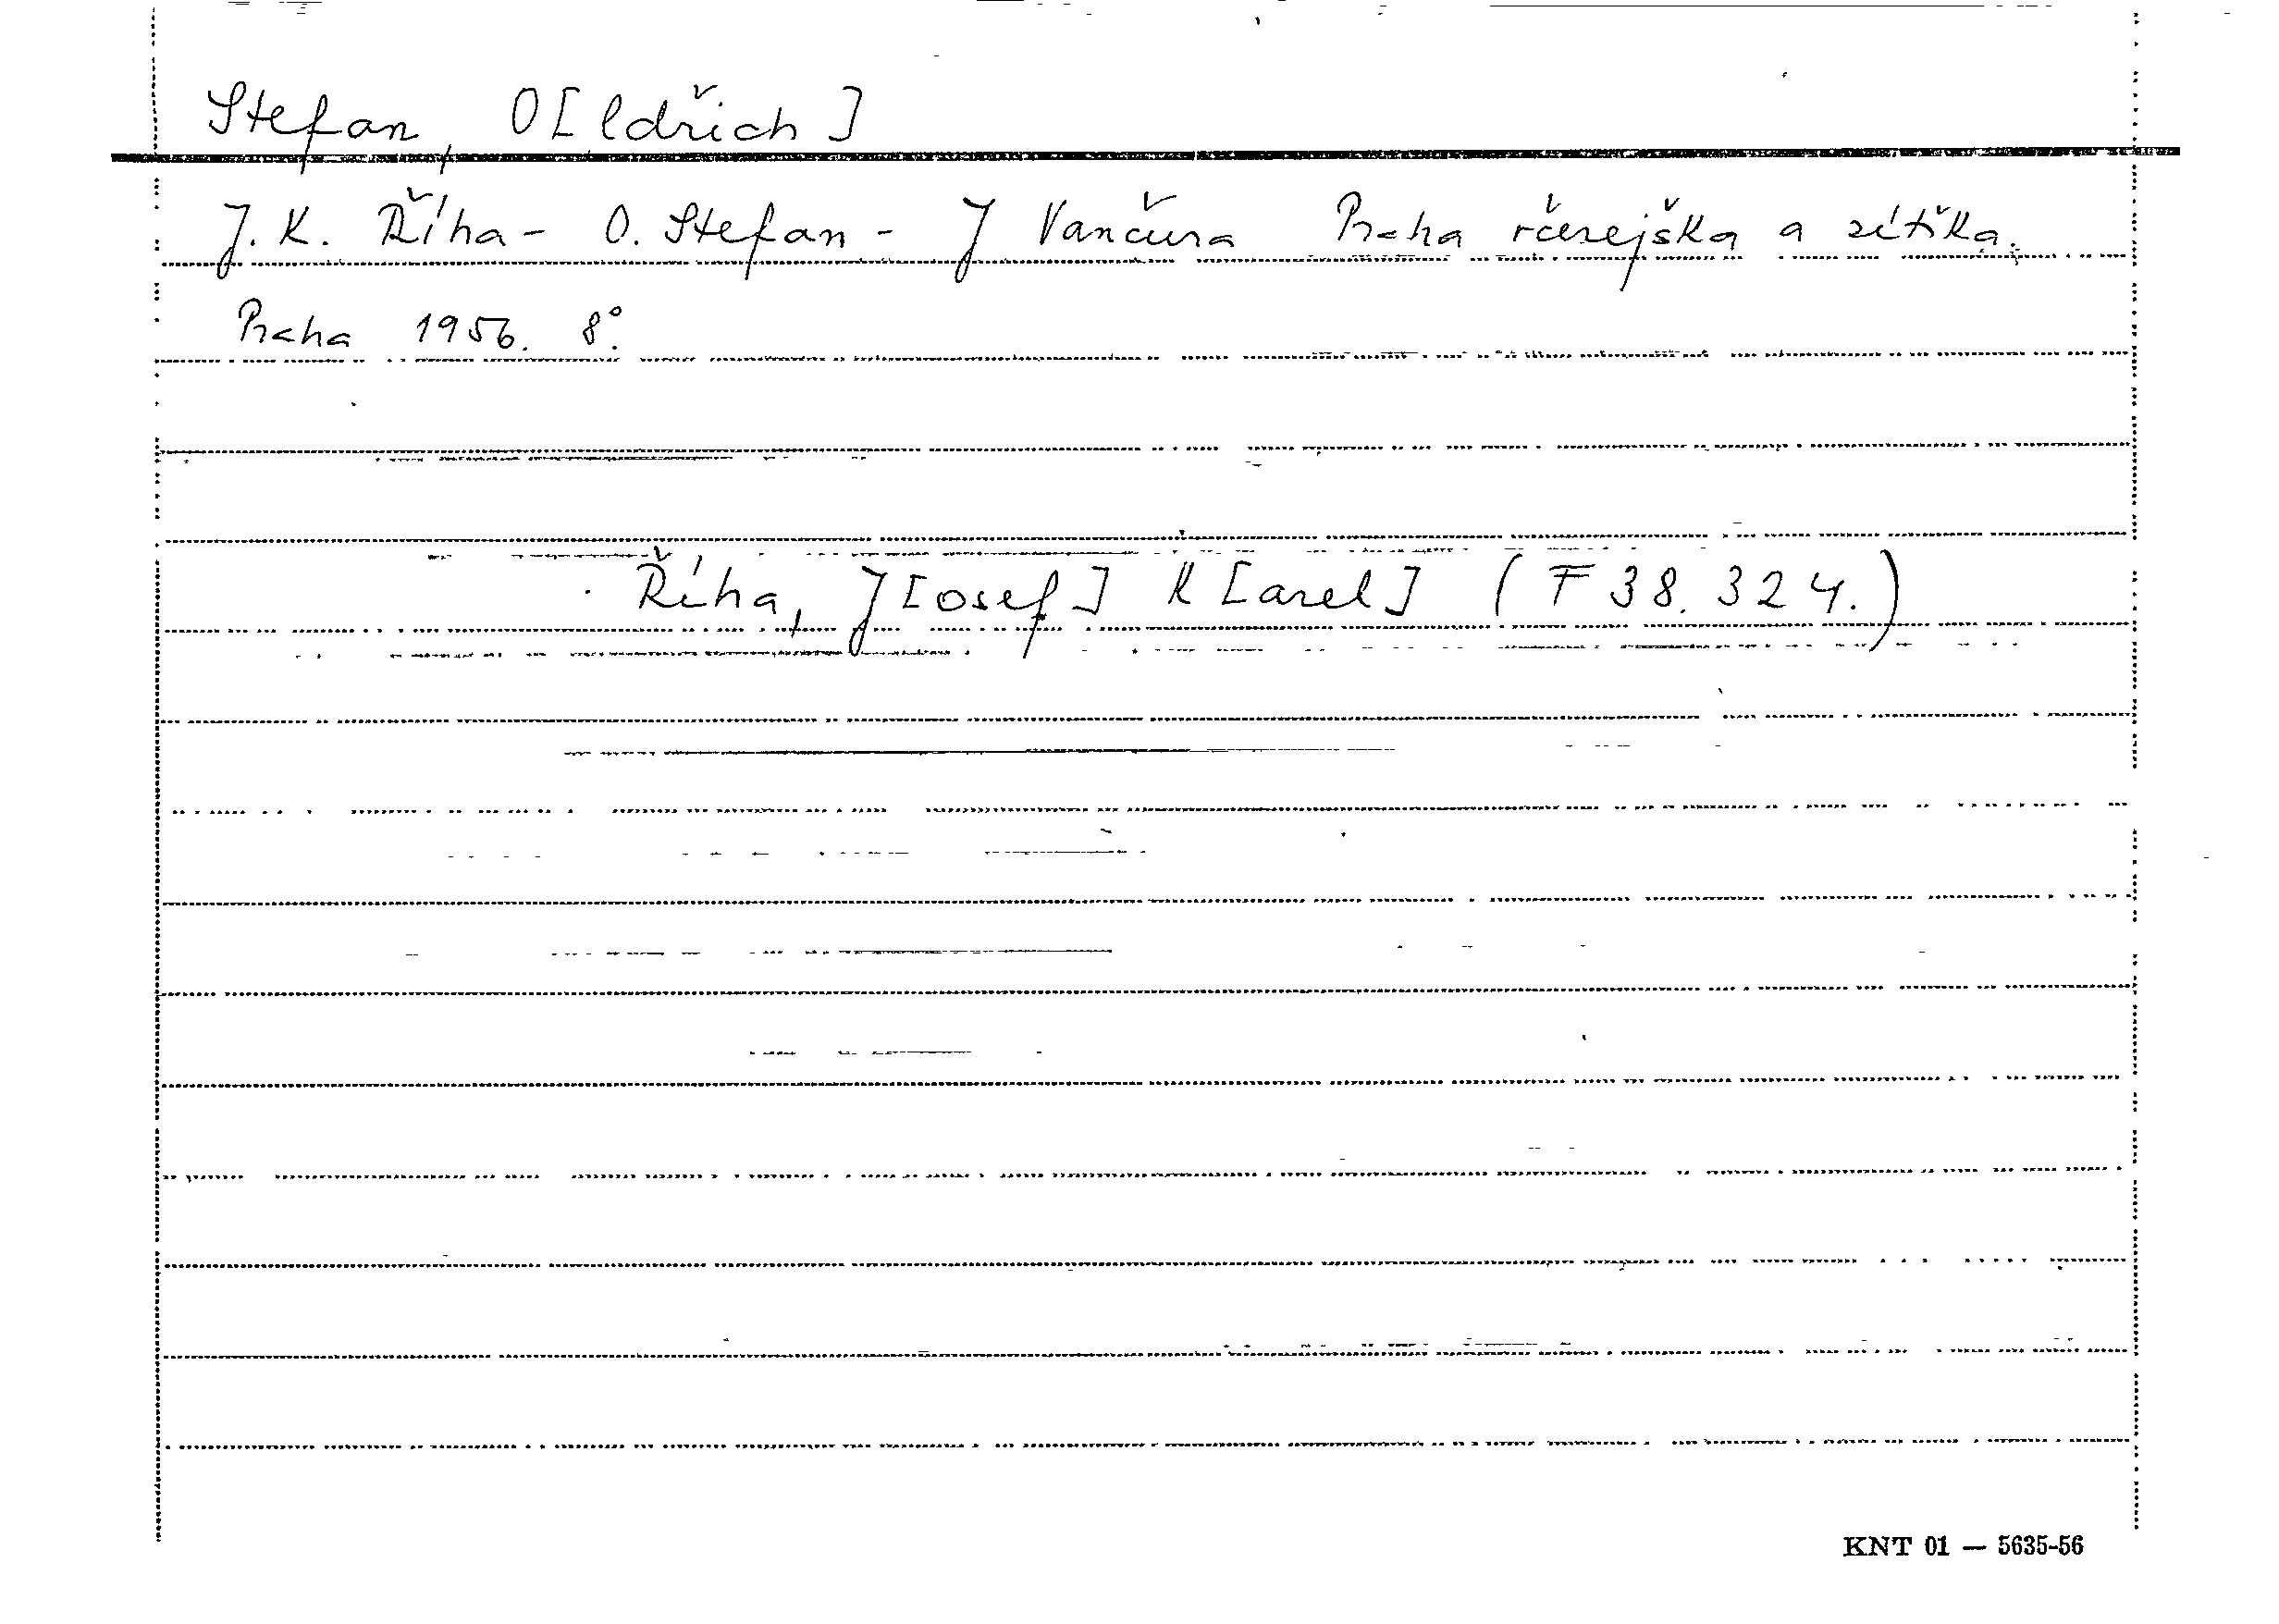 Stefan, O[ldřich]
J. K. Říha - O. Stefan - J Vančura Praha včerejška a zítřka.
Praha 1956. 8°.
Říha, J[osef] K[arel] (F 38.324.)
KNT 01 — 5635-56